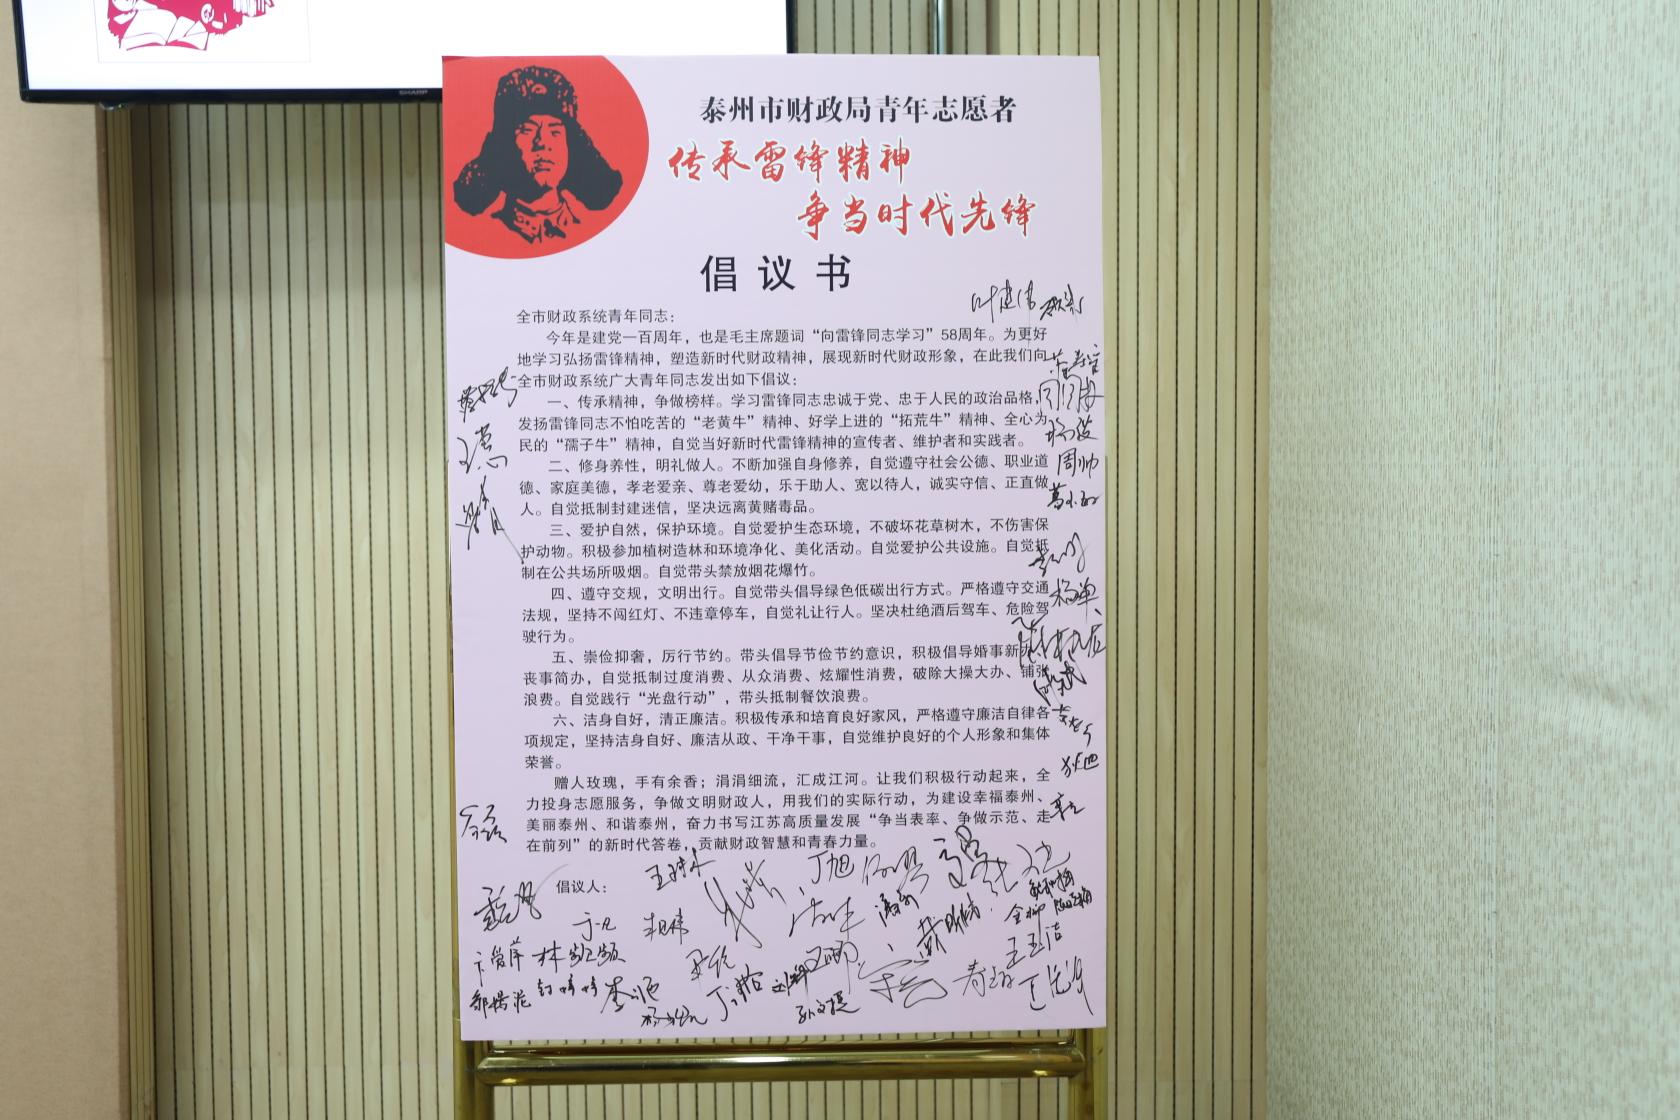 SHARP
泰州市财政局青年志愿者
传承雷锋精神
争当时代先锋
倡议书
全市财政系统青年同志：
今年是建党一百周年，也是毛主席题词“向雷锋同志学习”58周年。为更好
地学习弘扬雷锋精神，塑造新时代财政精神，展现新时代财政形象，在此我们向
全市财政系统广大青年同志发出如下倡议：
一、传承精神，争做榜样。学习雷锋同志忠诚于党、忠于人民的政治品格，
发扬雷锋同志不怕吃苦的“老黄牛”精神、好学上进的“拓荒牛”精神、全心为
民的“孺子牛”精神，自觉当好新时代雷锋精神的宣传者、维护者和实践者。
二、修身养性，明礼做人。不断加强自身修养，自觉遵守社会公德、职业道
德、家庭美德，孝老爱亲、尊老爱幼，乐于助人、宽以待人，诚实守信、正直做
人。自觉抵制封建迷信，坚决远离黄赌毒品。
三、爱护自然，保护环境。自觉爱护生态环境，不破坏花草树木，不伤害保
护动物。积极参加植树造林和环境净化、美化活动。自觉爱护公共设施。自觉抵
制在公共场所吸烟。自觉带头禁放烟花爆竹。
四、遵守交规，文明出行。自觉带头倡导绿色低碳出行方式。严格遵守交通
法规，坚持不闯红灯、不违章停车，自觉礼让行人。坚决杜绝酒后驾车、危险驾
驶行为。
五、崇俭抑奢，厉行节约。带头倡导节俭节约意识，积极倡导婚事新办、
丧事简办，自觉抵制过度消费、从众消费、炫耀性消费，破除大操大办、铺张
浪费。自觉践行“光盘行动”，带头抵制餐饮浪费。
六、洁身自好，清正廉洁。积极传承和培育良好家风，严格遵守廉洁自律各
项规定，坚持洁身自好、廉洁从政、干净干事，自觉维护良好的个人形象和集体
荣誉。
赠人玫瑰，手有余香；涓涓细流，汇成江河。让我们积极行动起来，全
力投身志愿服务，争做文明财政人，用我们的实际行动，为建设幸福泰州、
美丽泰州、和谐泰州，奋力书写江苏高质量发展“争当表率、争做示范、走
在前列”的新时代答卷，贡献财政智慧和青春力量。
倡议人：
叶建伟
周帅
丁旭
王玉洁